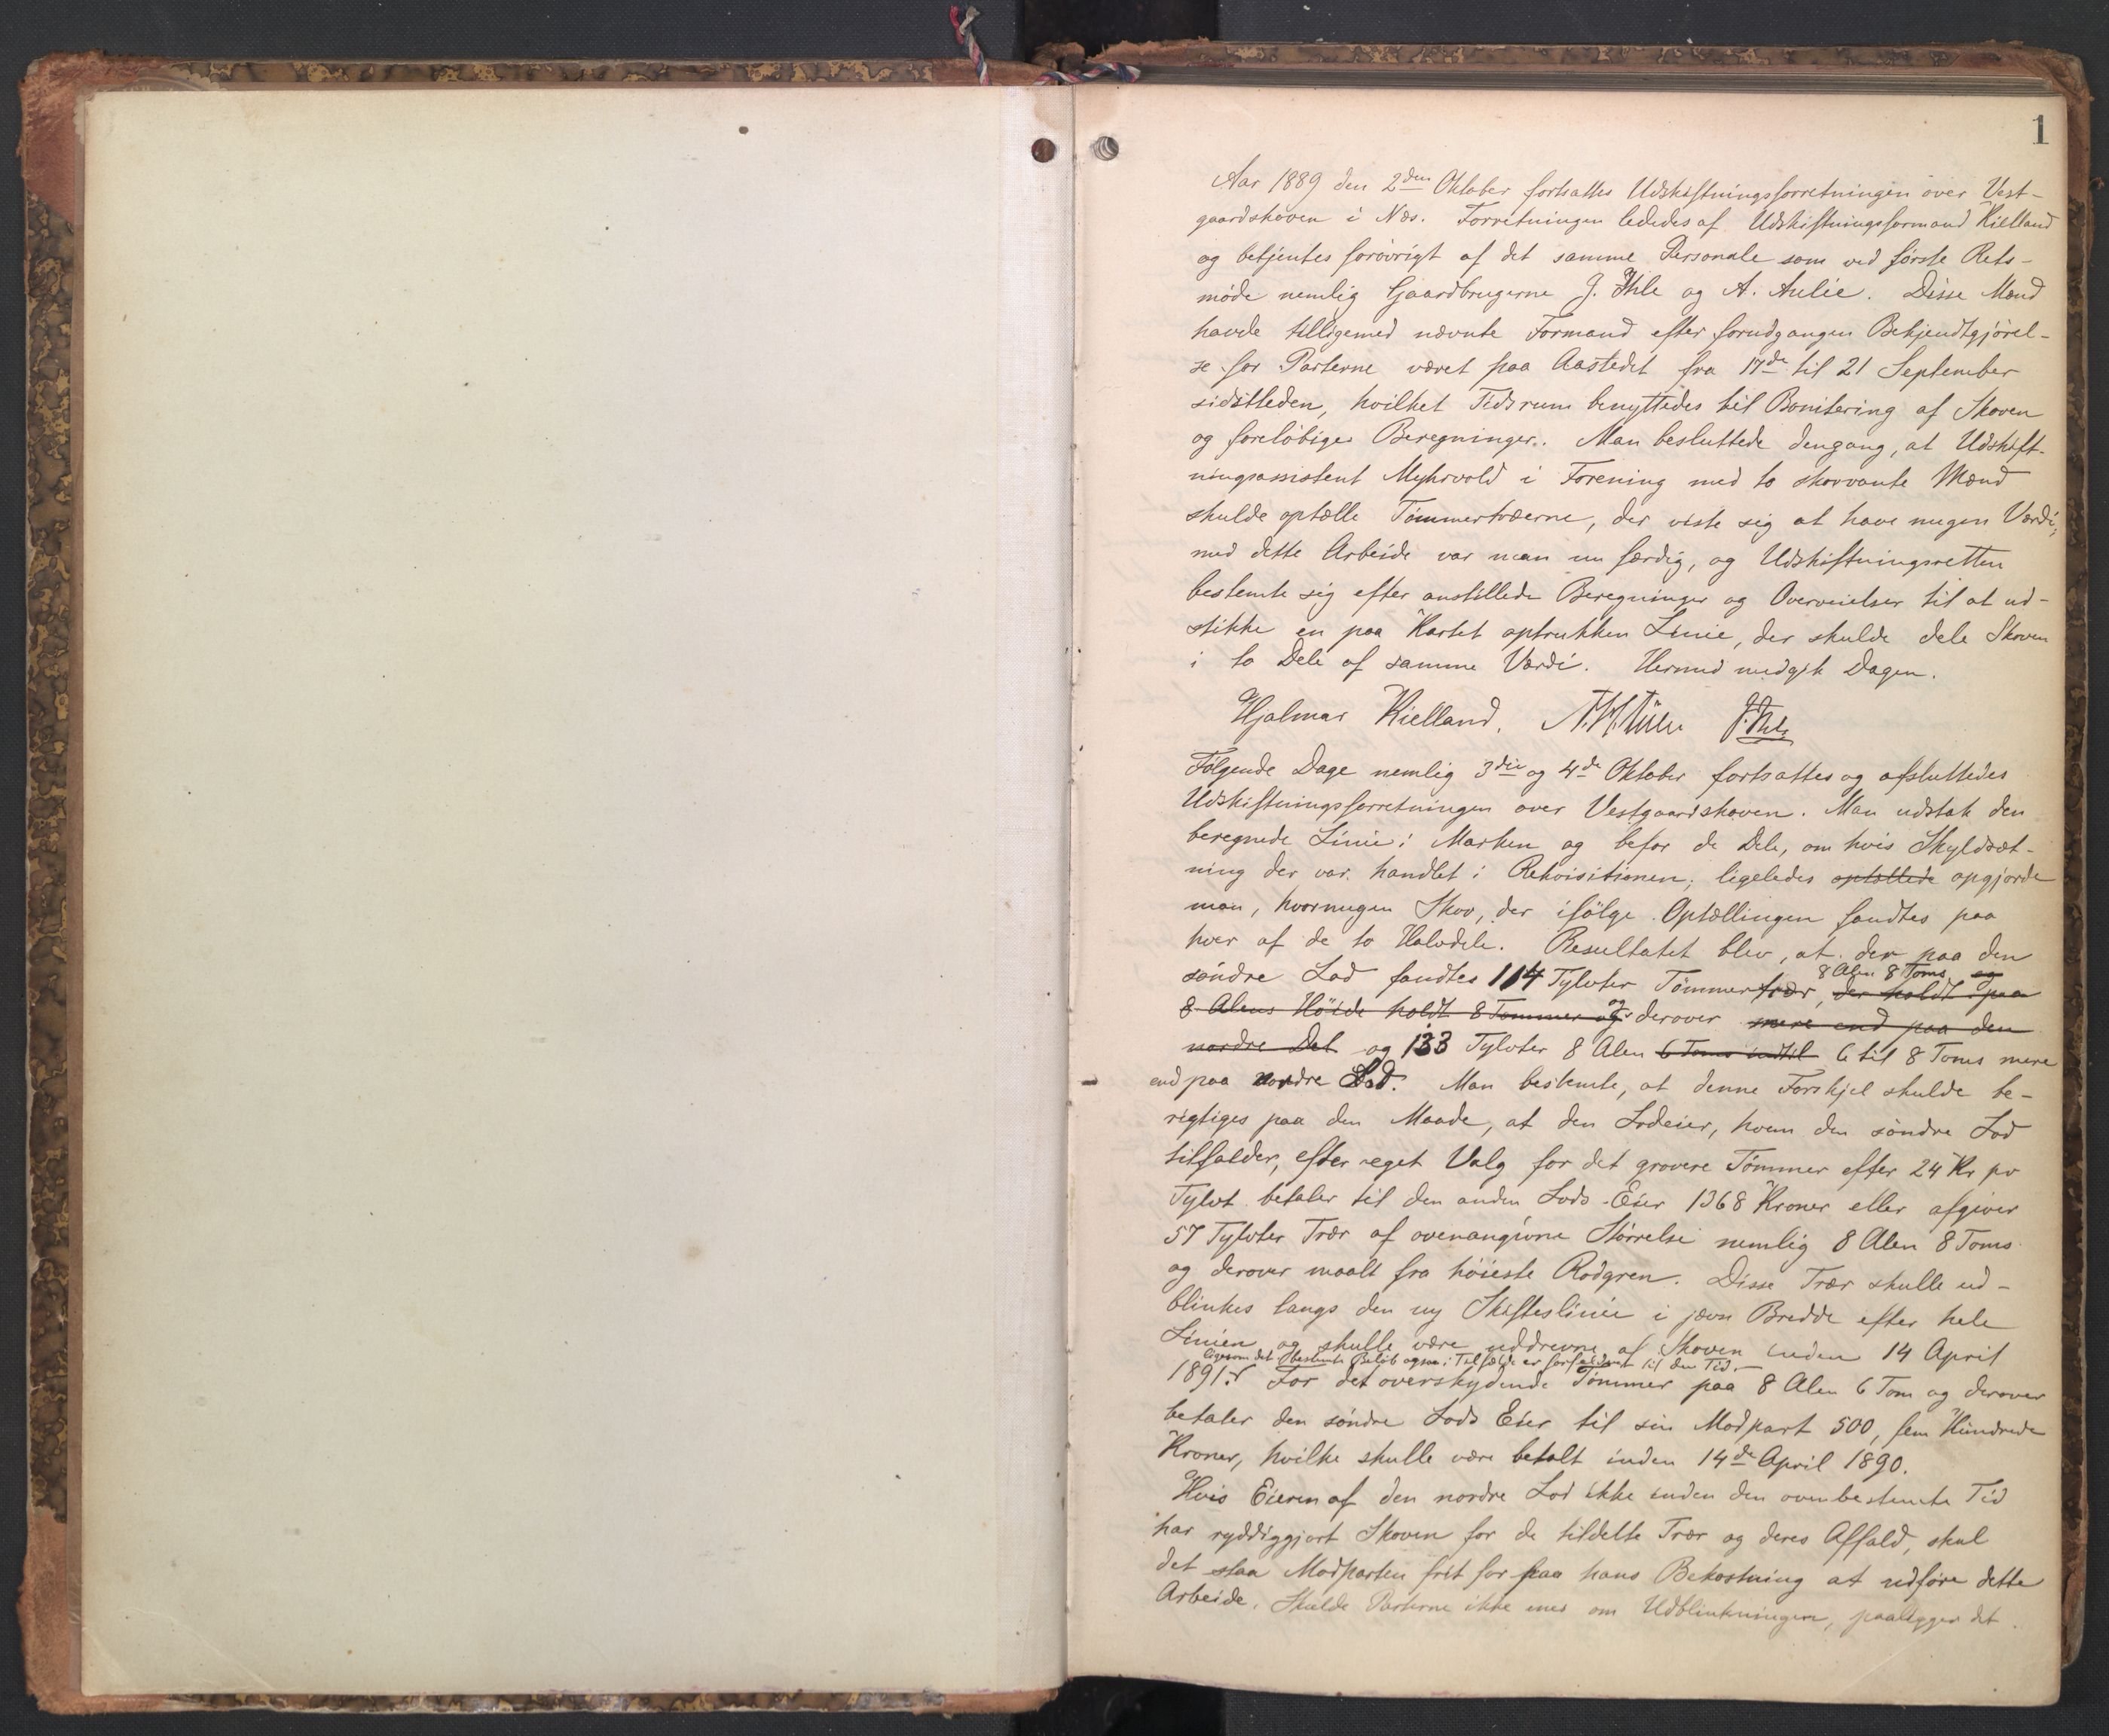 1
Aar 1889 den 2den Oktober fortsattes Udskiftningsforretningen over Vest-
gaardskoven i Næs. Forretningen lededes af Udskiftningsformand Kielland
og betjentes forøvrigt af det samme Personale som ved første Rets-
møde nemlig Gaardbrugerne J. Ihle og A. Aulie. Disse Mænd
havde tilligemed nævnte Formand efter forudgangen Bekjendtgjørel-
se for Parterne været paa Aastedet fra 17de til 21 September
sidstleden, hvilket Tidsrum benyttedes til Bonitering af Skoven
og foreløbige Beregninger. Man besluttede dengang, at Udskift-
ningsassistent Myhrvold i Forening med to skovvante Mænd
skulde optælle Tømmertræerne, der viste sig at have megen Værdi;
med dette Arbeide var man nu færdig, og Udskiftningsretten
bestemte sig efter anstillede Beregninger og Overveielser til at ud-
stikke en paa Kartet optrukken Linie, der skulde dele Skoven
i to Dele af samme Værdi. Hermed medgik Dagen.
Hjalmar Kielland. J. Ihle
Følgende Dage nemlig 3die og 4de Oktober fortsattes og afsluttedes
Udskiftningsforretningen over Vestgaardskoven. Man udstak den
beregnede Linie i Marken og befor de Dele, om hvis Skyldsæt-
ning der var handlet i Rekvisitionen; ligeledes optællede opgjorde
man, hvormegen Skov, der ifølge Optællingen fandtes paa
hver af de to Halvdele. Resultatet blev, at der paa den
søndre Lod fandtes 114 Tylvter Tømmertrær, der holdt paa
8 Alen 8 Toms og
8 Alens Høide holdt 8 Tommer og derover mere end paa den
nordre Del og 133 Tylvter 8 Alen 6 Toms indtil 6 til 8 Toms mere
end paa nordre Lod. Man bestemte, at denne Forskjel skulde be-
rigtiges paa den Maade, at den Lodeier, hvem den søndre Lod
tilfalder, efter eget Valg for det grovere Tømmer efter 24 Kr pr
Tylvt betaler til den anden Lods Eier 1368 Kroner eller afgiver
57 Tylvter Trær af ovenangivne Størrelse nemlig 8 Alen 8 Toms
og derover maalt fra høieste Rodgren. Disse Trær skulle ud-
blinkes langs den ny Skifteslinie i jævn Bredde efter hele
Linien og skulle være uddrevne af Skoven inden 14 April
ligesom det bestemte Beløb ogsaa i Tilfælde er forfaldent til den Tid.
1891. For det overskydende Tømmer paa 8 Alen 6 Tom og derover
betaler den søndre Lods Eier til sin Modpart 500, fem Hundrede
Kroner, hvilke skulle være betalt inden 14de April 1890.
Hvis Eieren af den nordre Lod ikke inden den ovenbestemte Tid
har ryddiggjort Skoven for de tildelte Trær og deres Affald, skal
det staa Modparten frit for paa hans Bekostning at udføre dette
Arbeide. Skulde Parterne ikke enes om Udblinkningen, paalægger det